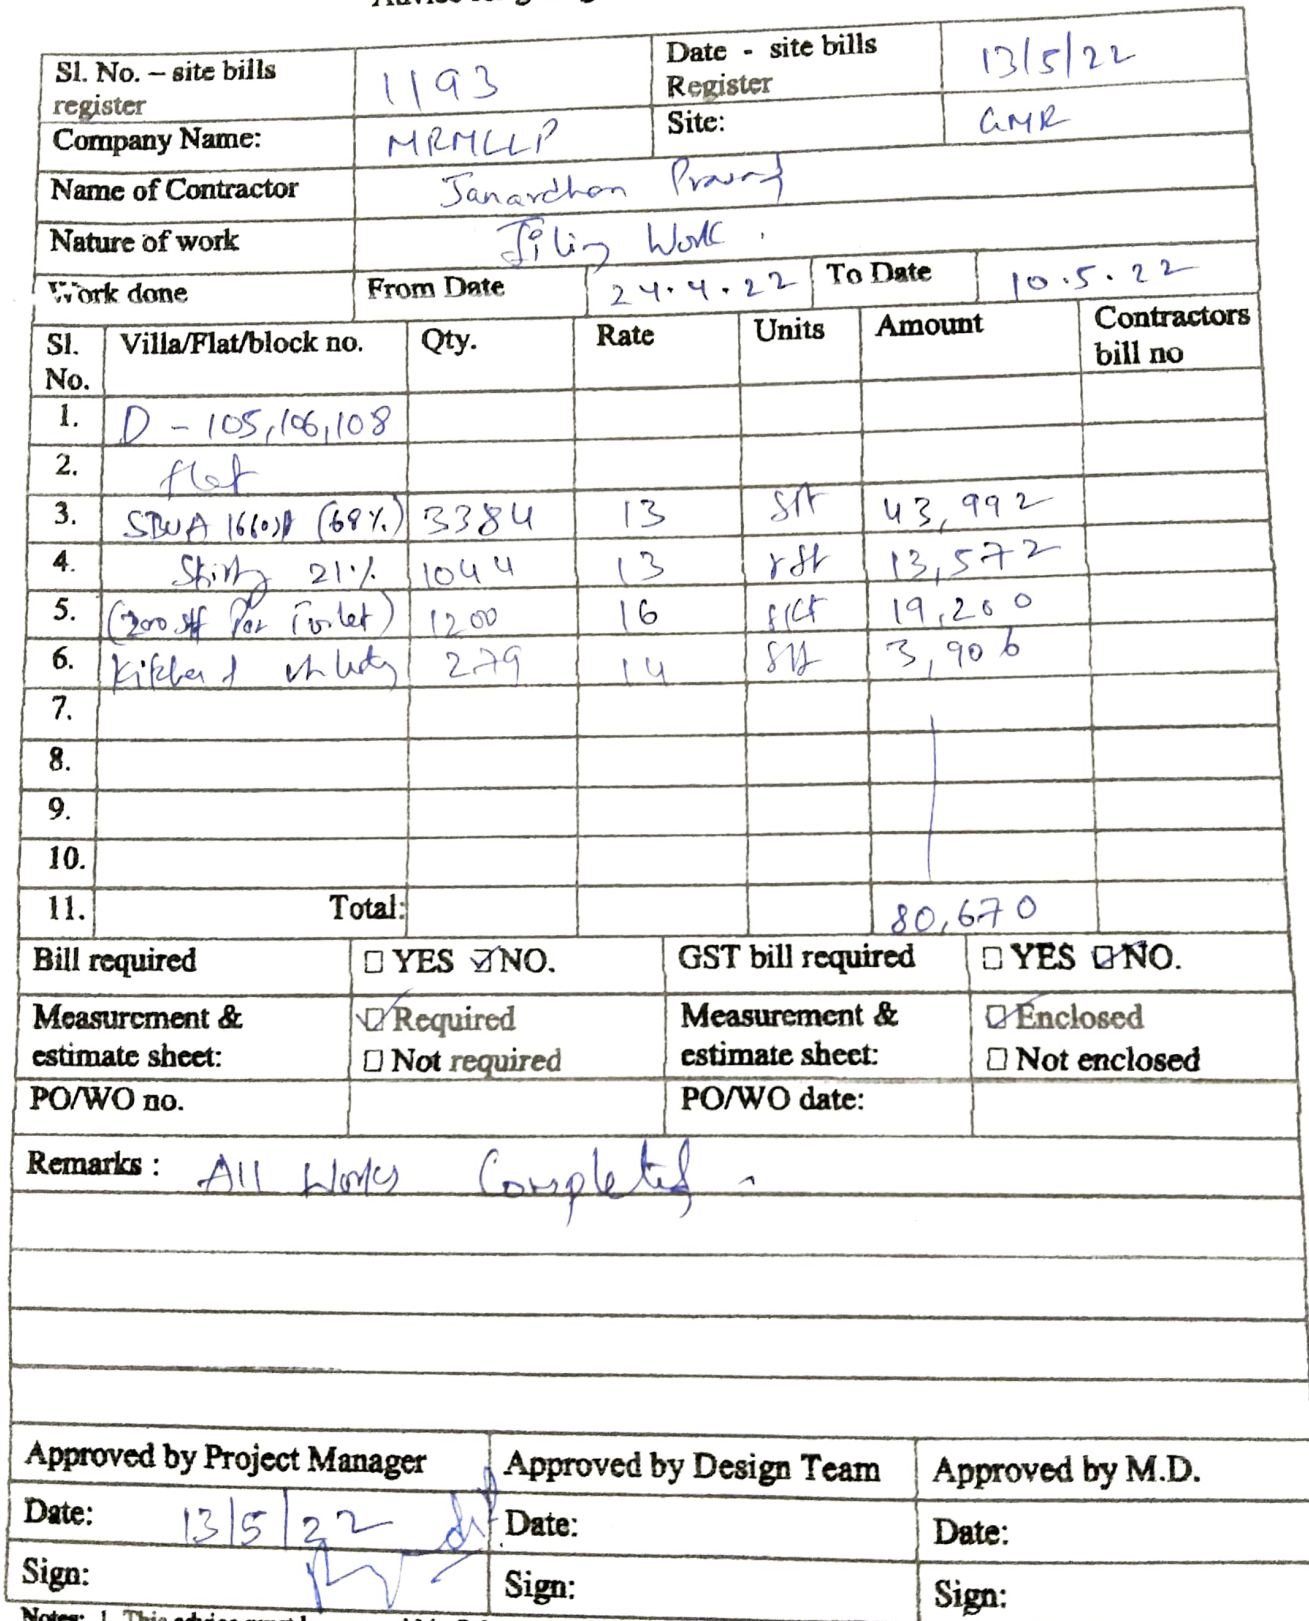 Sl. No. – site bills register 1193 Date - site bills Register 13/5/22
Company Name: MRMLLP Site: GMR
Name of Contractor Janardhan
Nature of work Tiling Work.
Work done From Date 24.4.22 To Date 10.5.22
Sl. No. Villa/Flat/block no. Qty. Rate Units Amount Contractors bill no
1. D - 105,106,108
2. flat
3. SBUA 1660 (68%) 3384 13 Sft 43,992
4. 21% 1044 13 rft 13,572
5. (200 sft Per Toilet) 1200 16 19,200
6. 279 14 Sft 3,906
7.
8.
9.
10.
11. Total: 80,670
Bill required ☐ YES ☑ NO. GST bill required ☐ YES ☑ NO.
Measurement & estimate sheet: ☑ Required Measurement & estimate sheet: ☑ Enclosed
☐ Not required ☐ Not enclosed
PO/WO no. PO/WO date:
Remarks : All Works Completed
Approved by Project Manager Approved by Design Team Approved by M.D.
Date: 13/5/22 Date: Date:
Sign: Sign: Sign: